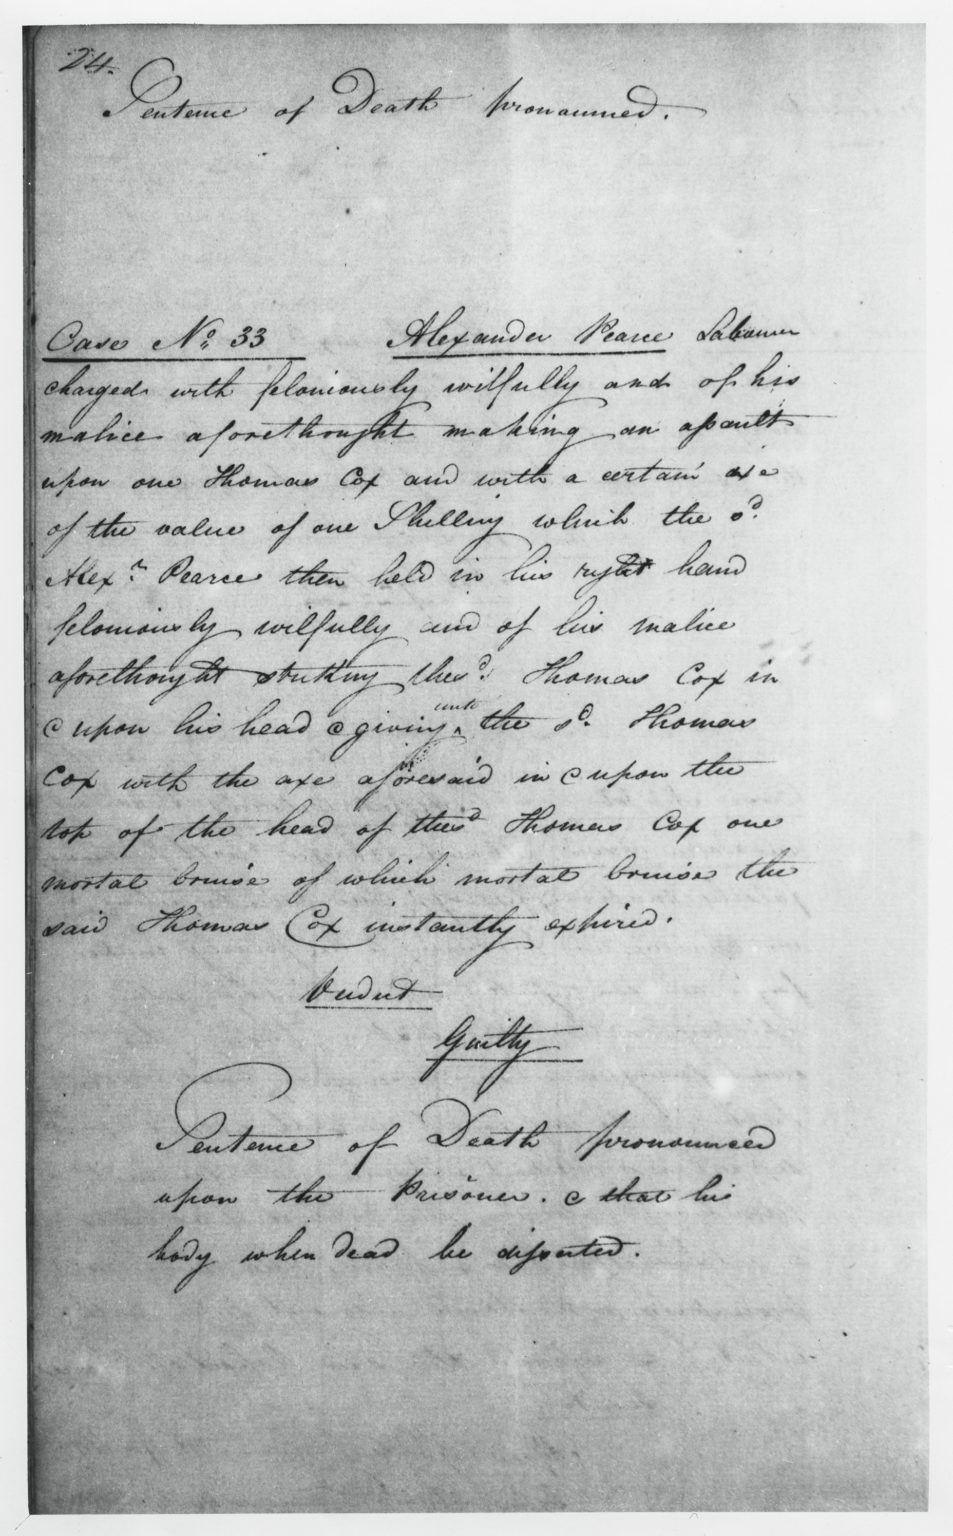 24.
Sentence of Death pronounced.
Case No. 33 Alexander Pearce Labourer
charged with feloniously wilfully and of his
malice aforethought making an assault
upon one Thomas Cox and with a certain axe
of the value of one Shilling which the sd.
Alexr. Pearce then held in his right hand
feloniously wilfully and of his malice
aforethought striking the sd. Thomas Cox in
& upon his head & giving unto the sd. Thomas
Cox with the axe aforesaid in & upon the
top of the head of the sd Thomas Cox one
mortal bruise of which mortal bruise the
said Thomas Cox instantly expired.
Verdict
Guilty
Sentence of Death pronounced
upon the Prisoner. & that his
body when dead be dissected.